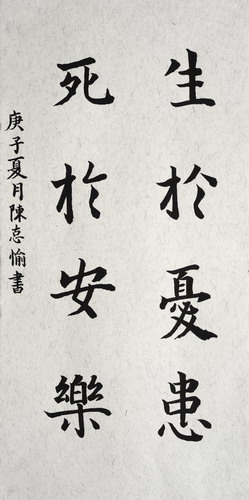 生於憂患
死於安樂
庚子夏月陳志愉書